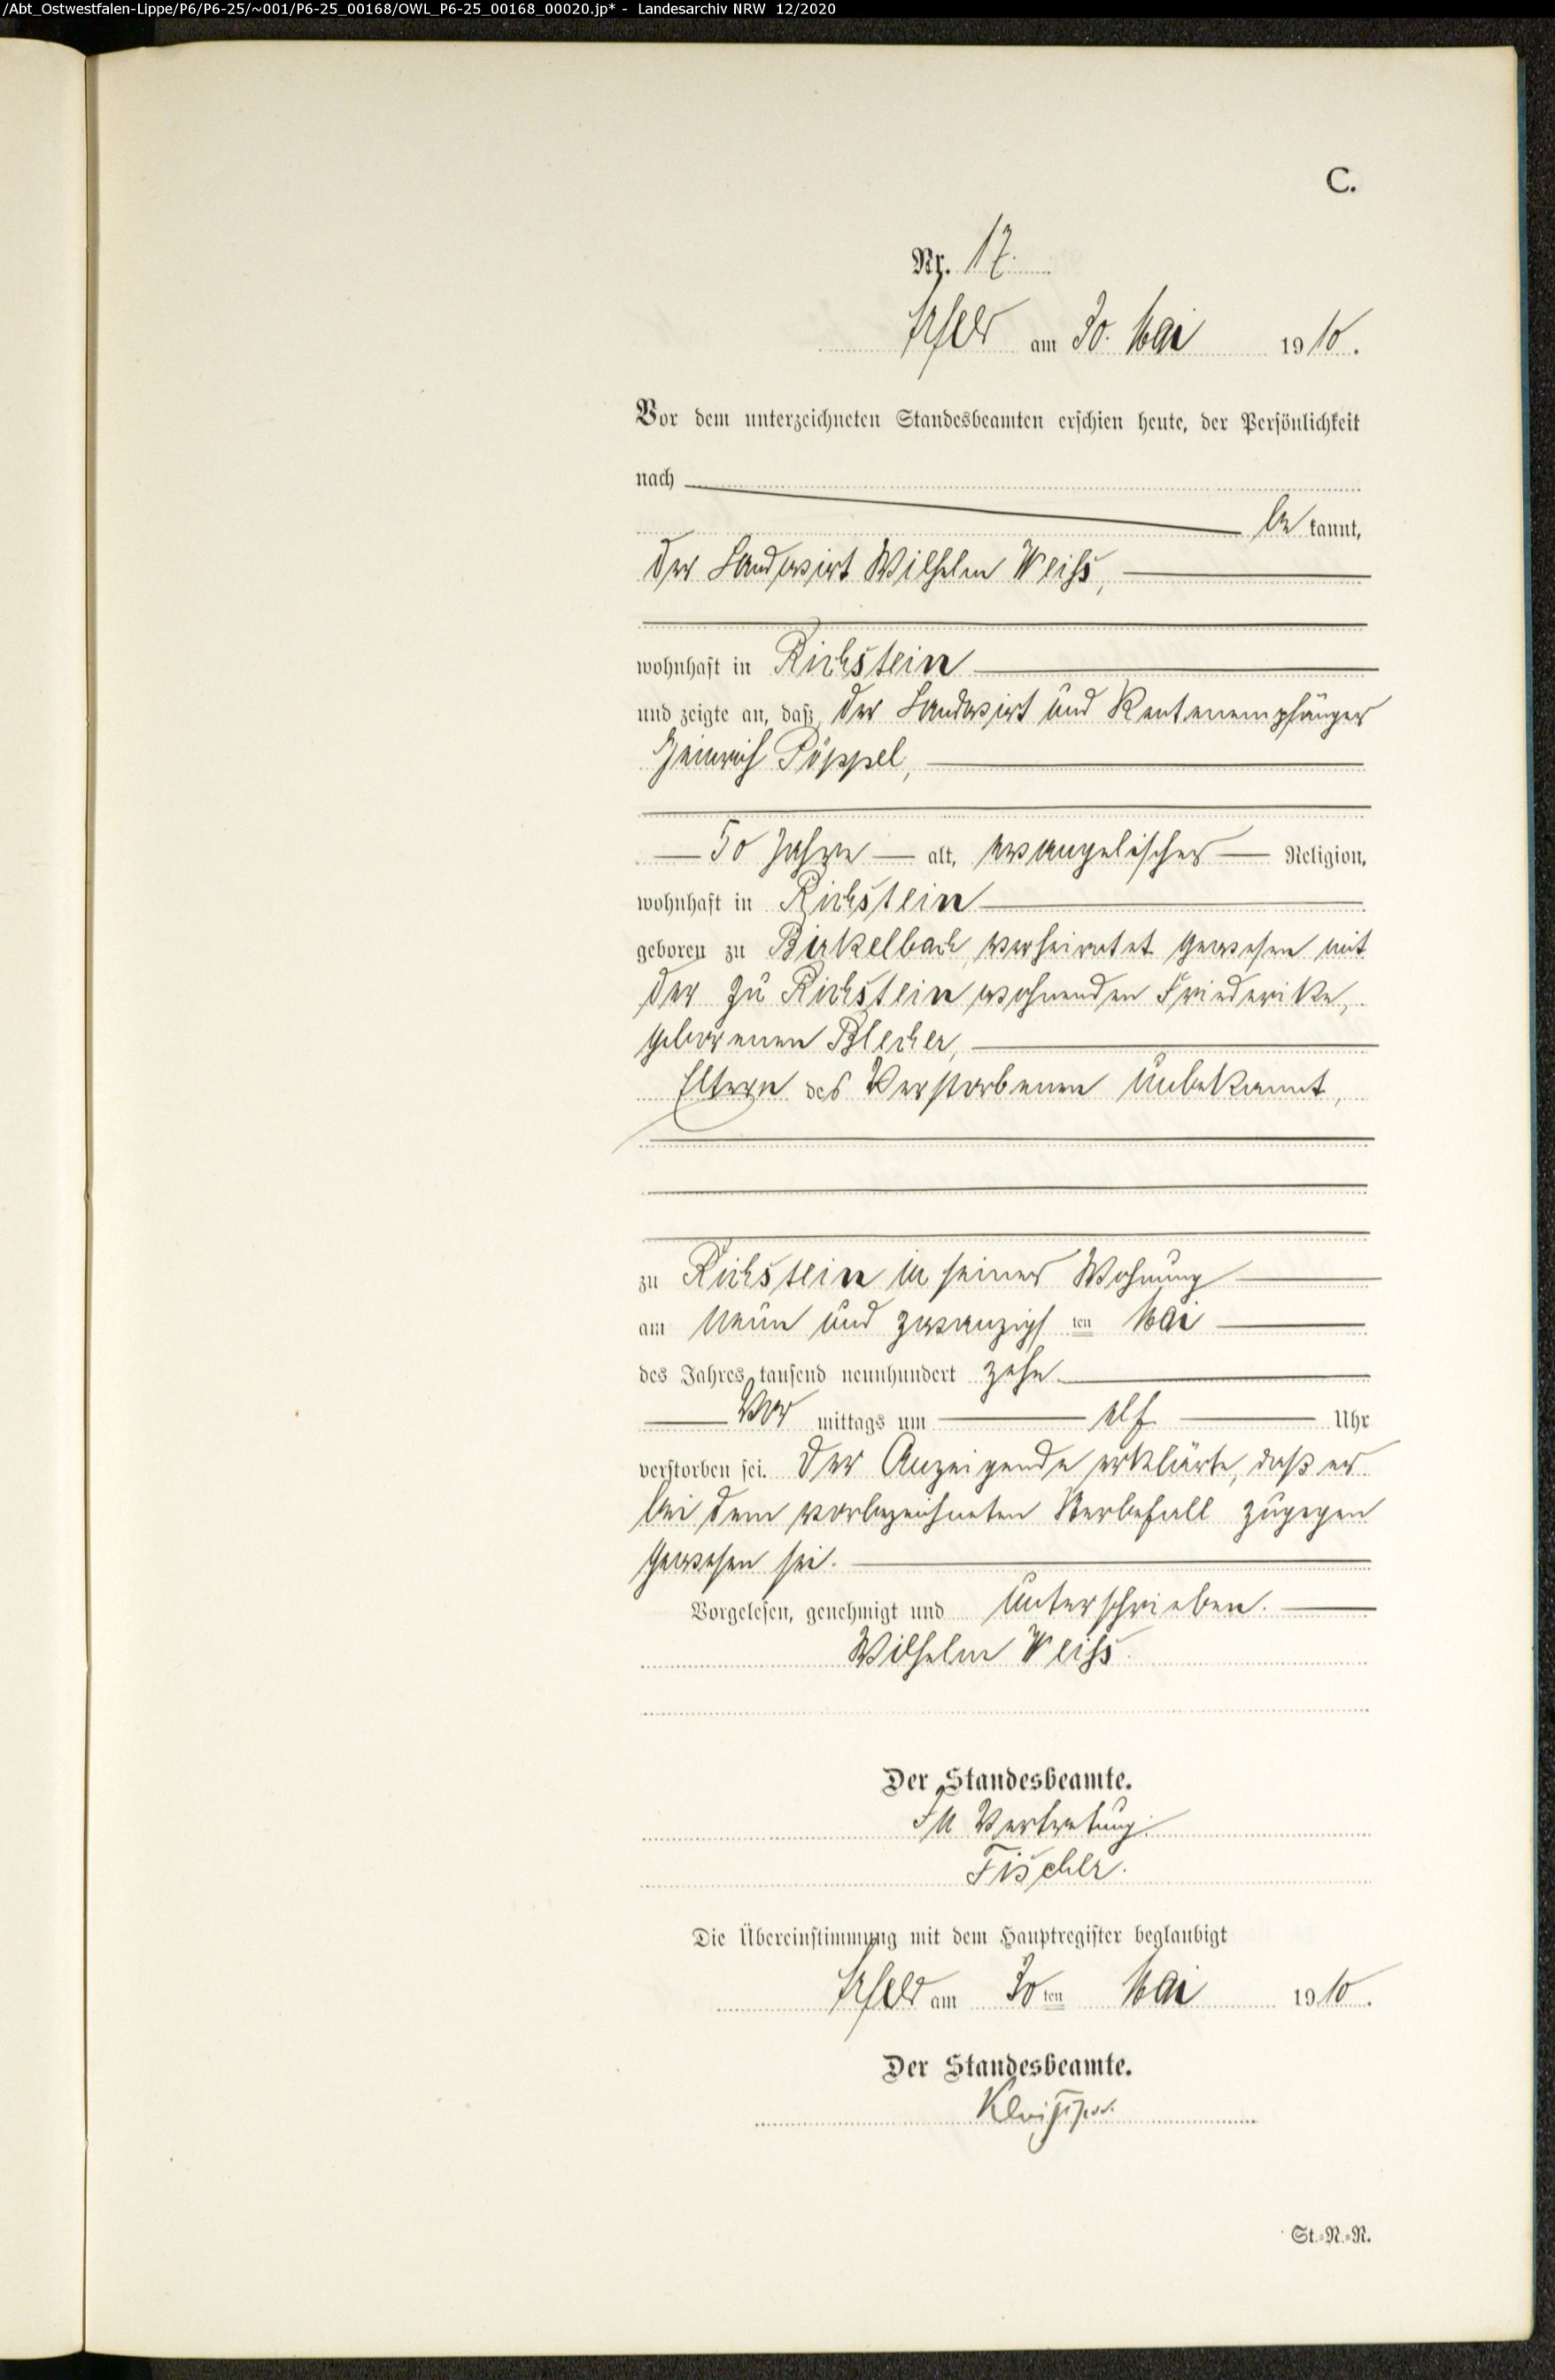 /Abt_Ostwestfalen-Lippe/P6/P6-25/~001/P6-25_00168/OWL_P6-25_00168_00020.jp* - Landesarchiv NRW 12/2020
C.
Nr. 17.
Arfeld am 30. Mai 1910.
Vor dem unterzeichneten Standesbeamten erschien heute, der Persönlichkeit
nach
bekannt,
der Landwirt Wilhelm Weiss,
wohnhaft in Richstein
und zeigte an, daß der Landwirt und Rentenempfänger
Heinrich Pöppel,
50 Jahre alt, evangelischer Religion,
wohnhaft in Richstein
geboren zu Birkelbach, verheiratet gewesen mit
der zu Richstein wohnenden Friederike,
geborenen Blecher,
Eltern des Verstorbenen unbekannt,
zu Richstein in seiner Wohnung
am neun und zwanzigsten Mai
des Jahres tausend neunhundert zehn
Vormittags um elf Uhr
verstorben sei. Der Anzeigende erklärte, daß er
bei dem vorbezeichneten Sterbefall zugegen
gewesen sei.
Vorgelesen, genehmigt und unterschrieben.
Wilhelm Weiss.
Der Standesbeamte.
In Vertretung:
Fischer.
Die Übereinstimmung mit dem Hauptregister beglaubigt
Arfeld am 30ten Mai 1910.
Der Standesbeamte.
St.-N.-R.